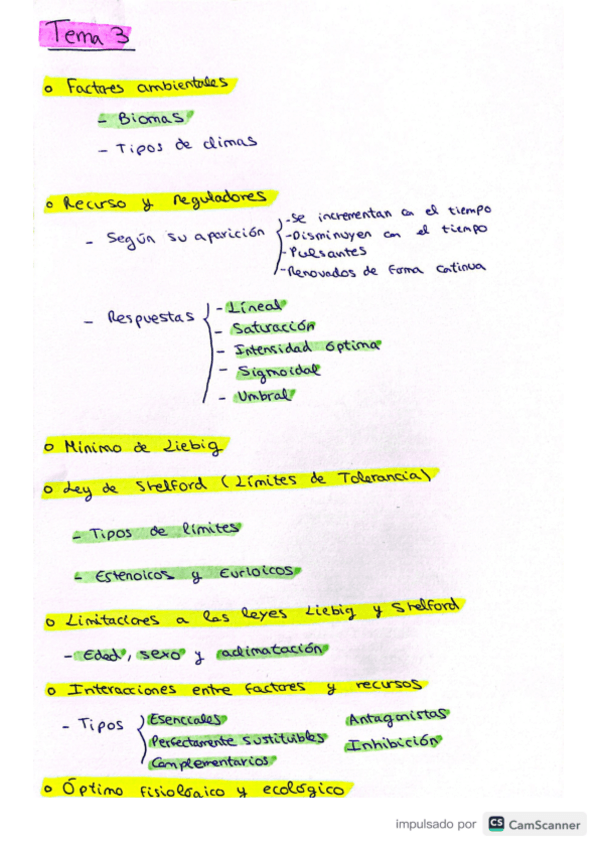 Tema 3
o Factores ambientales
- Biomas
- Tipos de climas
o Recurso y reguladores
- Según su aparición
- Se incrementan con el tiempo
- Disminuyen con el tiempo
- Pulsantes
- Renovados de forma continua
- Respuestas
- Líneal
- Saturación
- Intensidad óptima
- Sigmoidal
- Umbral
o Mínimo de Liebig
o Ley de Shelford (Límites de Tolerancia)
- Tipos de límites
- Estenoicos y Eurioicos
o Limitaciones a las leyes Liebig y Shelford
- Edad, sexo y aclimatación
o Interacciones entre factores y recursos
- Tipos
Esenciales
Perfectamente sustituibles
Complementarios
Antagonistas
Inhibición
o Óptimo fisiológico y ecológico
impulsado por CS CamScanner